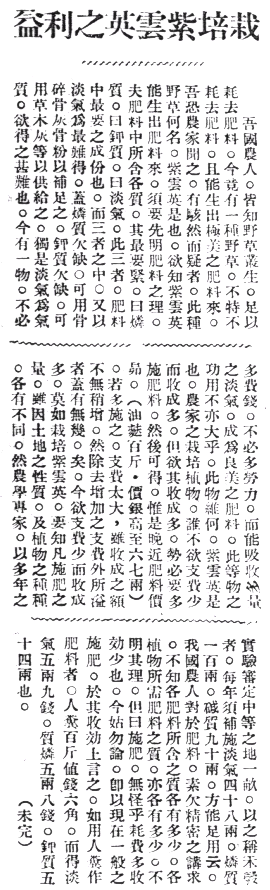 栽培紫雲英之利益
吾國農人。皆知野草叢生。足以
耗去肥料。今竟有一種野草。不特不
耗去肥料。且能生出極美之肥料來。
吾恐農家聞之。有駭然而疑者。此種
野草何名。紫雲英是也。欲知紫雲英
能生出肥料來。須要先明肥料之理。
夫肥料中所含各質。其最要緊。曰燐
質。曰鉀質。曰淡氣。此三者。肥料
中最要之成份也。而三者之中。又以
淡氣爲最難得。蓋燐質欠缺。可用骨
碎骨灰骨粉以補足之。鉀質欠缺。可
用草木灰等以供給之。獨是淡氣爲氣
質。欲得之甚難也。今有一物。不必
多費錢。不必多勞力。而能吸收多量
之淡氣。成爲良美之肥料。此等物之
功用不亦大乎。此物維何。紫雲英是
也。農家之栽培植物。誰不欲支費少
而收成多。但欲其收成多。勢必要多
施肥料。然後可得。惟是晚近肥料價
昂。(油麩百斤。價銀高至六七兩)
。若多施之。支費太大，雖收成之額
不無稍增。然除去增加之支費外所溢
者蓋有無幾矣。今欲支費少而收成
多。莫如栽培紫雲英。要知凡施肥之
量。雖因土地之性質。及植物之種種
。各有不同。然農學專家。以多年之
實驗審定中等之地一畝。以之種禾穀
者。每年須補施淡氣四十八兩。燐質
一百兩。鉀質九十兩。方能足用云。
我國農人對於肥料。素欠精密之講求
。不知各肥料所含之質各有多少。各
植物所需肥料之質。亦各有多少。不
明其理。但曰施肥。無怪乎耗費多收
効少也。今姑勿論。卽以現在一般之
施肥。於其收効上言之。如用人糞作
肥料者。人糞百斤値錢六角。而得淡
氣五兩九錢。質燐五兩八錢。鉀質五
十四兩也。　　　　(未完)